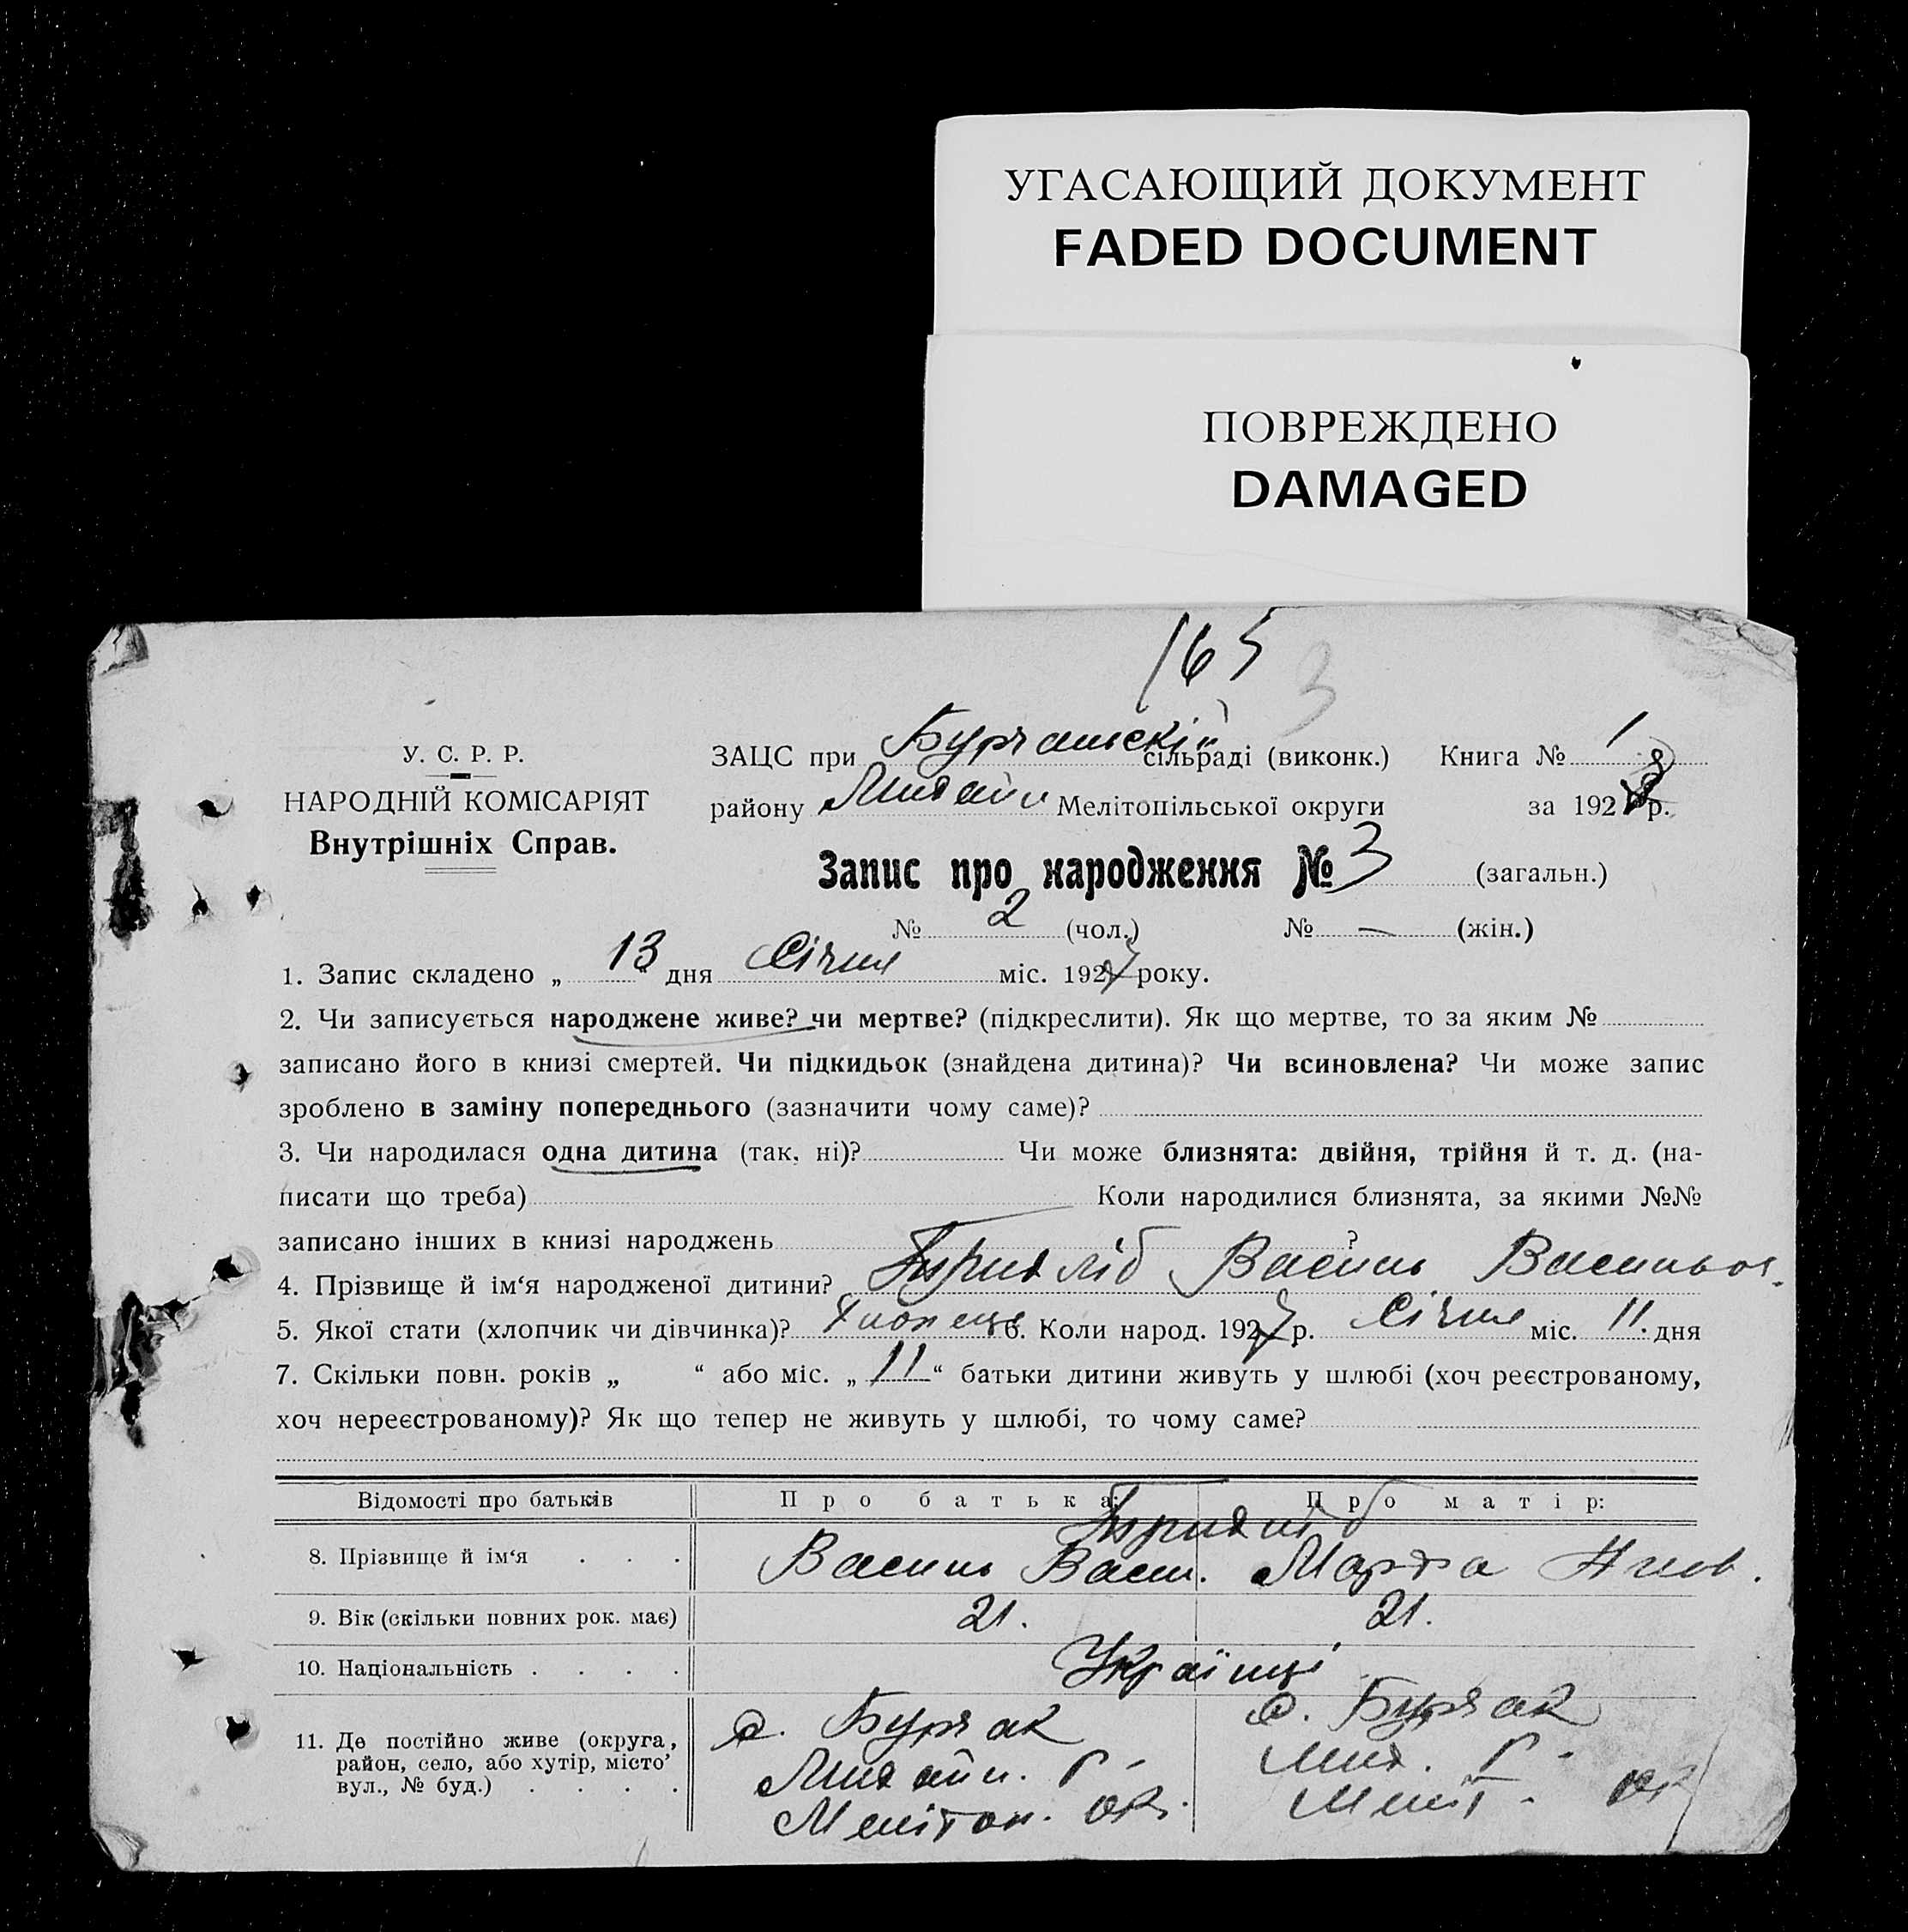 УГАСАЮЩИЙ ДОКУМЕНТ
FADED DOCUMENT
ПОВРЕЖДЕНО
DAMAGED
165 3
У. С. Р. Р.
НАРОДНІЙ КОМІСАРІЯТ
Внутрішніх Справ.
ЗАЦС при сільраді (виконк.) Книга № 1
району Михайл Мелітопільської округи за 1928 р.
Запис про народження № 3 (загальн.)
№ 2 (чол.) № — (жін.)
1. Запис складено „ 13 “ дня Січня міс. 1927 року.
2. Чи записується народжене живе? чи мертве? (підкреслити). Як що мертве, то за яким №
записано його в книзі смертей. Чи підкидьок (знайдена дитина)? Чи всиновлена? Чи може запис
зроблено в заміну попереднього (зазначити чому саме)?
3. Чи народилася одна дитина (так, ні)? Чи може близнята: двійня, трійня й т. д. (на-
писати що треба) Коли народилися близнята, за якими №№
записано інших в книзі народжень ?
4. Прізвище й ім‘я народженої дитини? Василь Васильов.
5. Якої стати (хлопчик чи дівчинка)? Хлопець 6. Коли народ. 1927 р. Січня міс. 11. дня
7. Скільки повн. років „ “ або міс. „ 11 “ батьки дитини живуть у шлюбі (хоч реєстрованому,
хоч нереєстрованому)? Як що тепер не живуть у шлюбі, то чому саме?
Відомості про батьків Про батька: Про матір:
8. Прізвище й ім‘я . . . Василь Васил. Марфа
9. Вік (скільки повних рок. має) 21. 21.
10. Національність . . . . Українці
11. Де постійно живе (округа, район, село, або хутір, місто’ вул., № буд.) . . . .
с. Бурчак
Михайл. Р-
Мелітоп. окр.
с. Бурчак
Мих. Р-
Меліт. окр